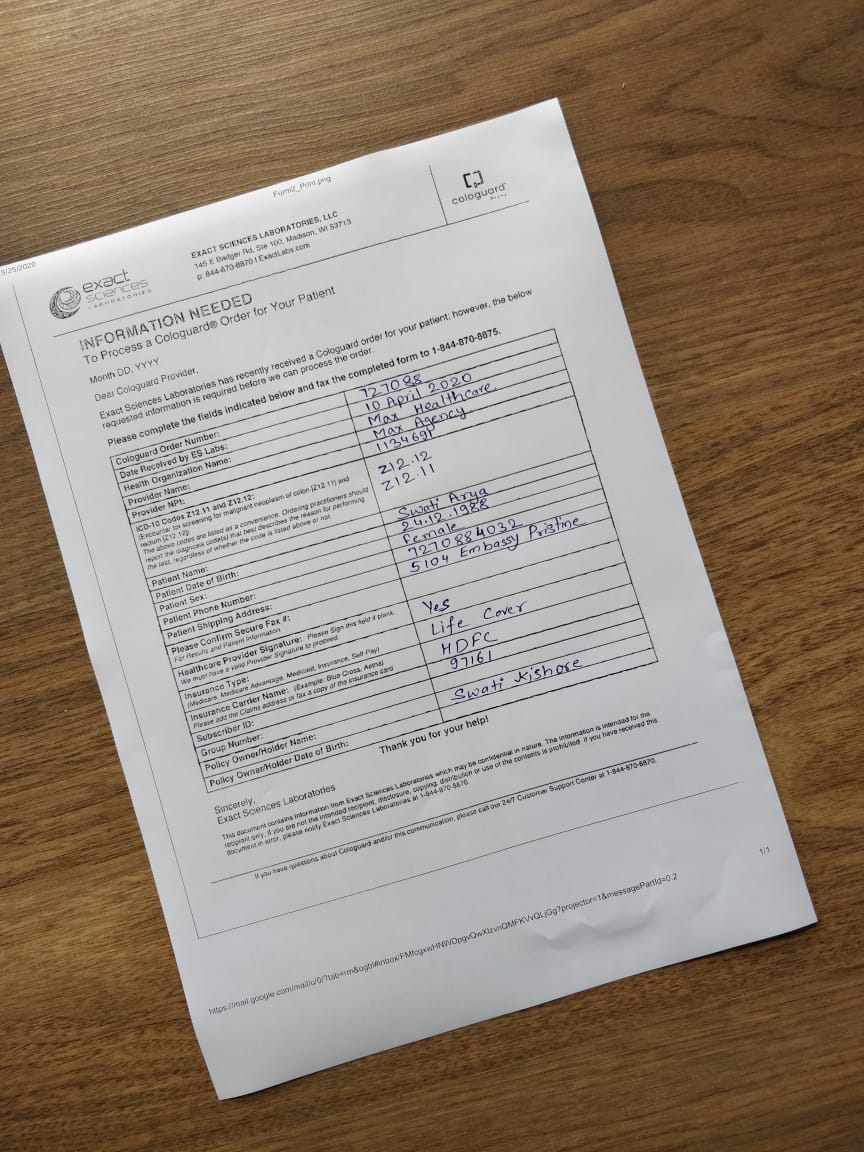 Form2_Print.png
5/25/2020
exact
sciences
LABORATORIES
EXACT SCIENCES LABORATORIES, LLC
145 E Badger Rd, Ste 100, Madison, WI 53713
p: 844-870-8870 | ExactLabs.com
cologuard
INFORMATION NEEDED
To Process a Cologuard® Order for Your Patient
Month DD, YYYY
Dear Cologuard Provider,
Exact Sciences Laboratories has recently received a Cologuard order for your patient; however, the below
requested information is required before we can process the order.
Please complete the fields indicated below and fax the completed form to 1-844-870-8875.
Cologuard Order Number: 727088
Date Received by ES Labs: 10 April 2020
Health Organization Name: Max Healthcare
Provider Name: Max Agency
Provider NPI: 1134691
ICD-10 Codes Z12.11 and Z12.12: Z12.12
(Encounter for screening for malignant neoplasm of colon [Z12.11] and Z12.11
rectum [Z12.12])
The above codes are listed as a convenience. Ordering practitioners should
report the diagnosis code(s) that best describes the reason for performing
the test, regardless of whether the code is listed above or not
Patient Name: Swati Arya
Patient Date of Birth: 24.12.1988
Patient Sex: Female
Patient Phone Number: 7270884032
Patient Shipping Address: 5104 Embassy Pristine
Please Confirm Secure Fax #:
For Results and Patient Information
Healthcare Provider Signature: Please Sign this field if blank. Yes
We must have a valid Provider Signature to proceed.
Insurance Type: Life Cover
(Medicare, Medicare Advantage, Medicaid, Insurance, Self-Pay)
Insurance Carrier Name: (Example: Blue Cross, Aetna) HDFC
Please add the Claims address or fax a copy of the insurance card
Subscriber ID: 97161
Group Number:
Policy Owner/Holder Name: Swati Kishore
Policy Owner/Holder Date of Birth:
Thank you for your help!
Sincerely,
Exact Sciences Laboratories
This document contains information from Exact Sciences Laboratories which may be confidential in nature. The information is intended for the
recipient only. If you are not the intended recipient, disclosure, copying, distribution or use of the contents is prohibited. If you have received this
document in error, please notify Exact Sciences Laboratories at 1-844-870-8870.
If you have questions about Cologuard and/or this communication, please call our 24/7 Customer Support Center at 1-844-870-8870.
1/1